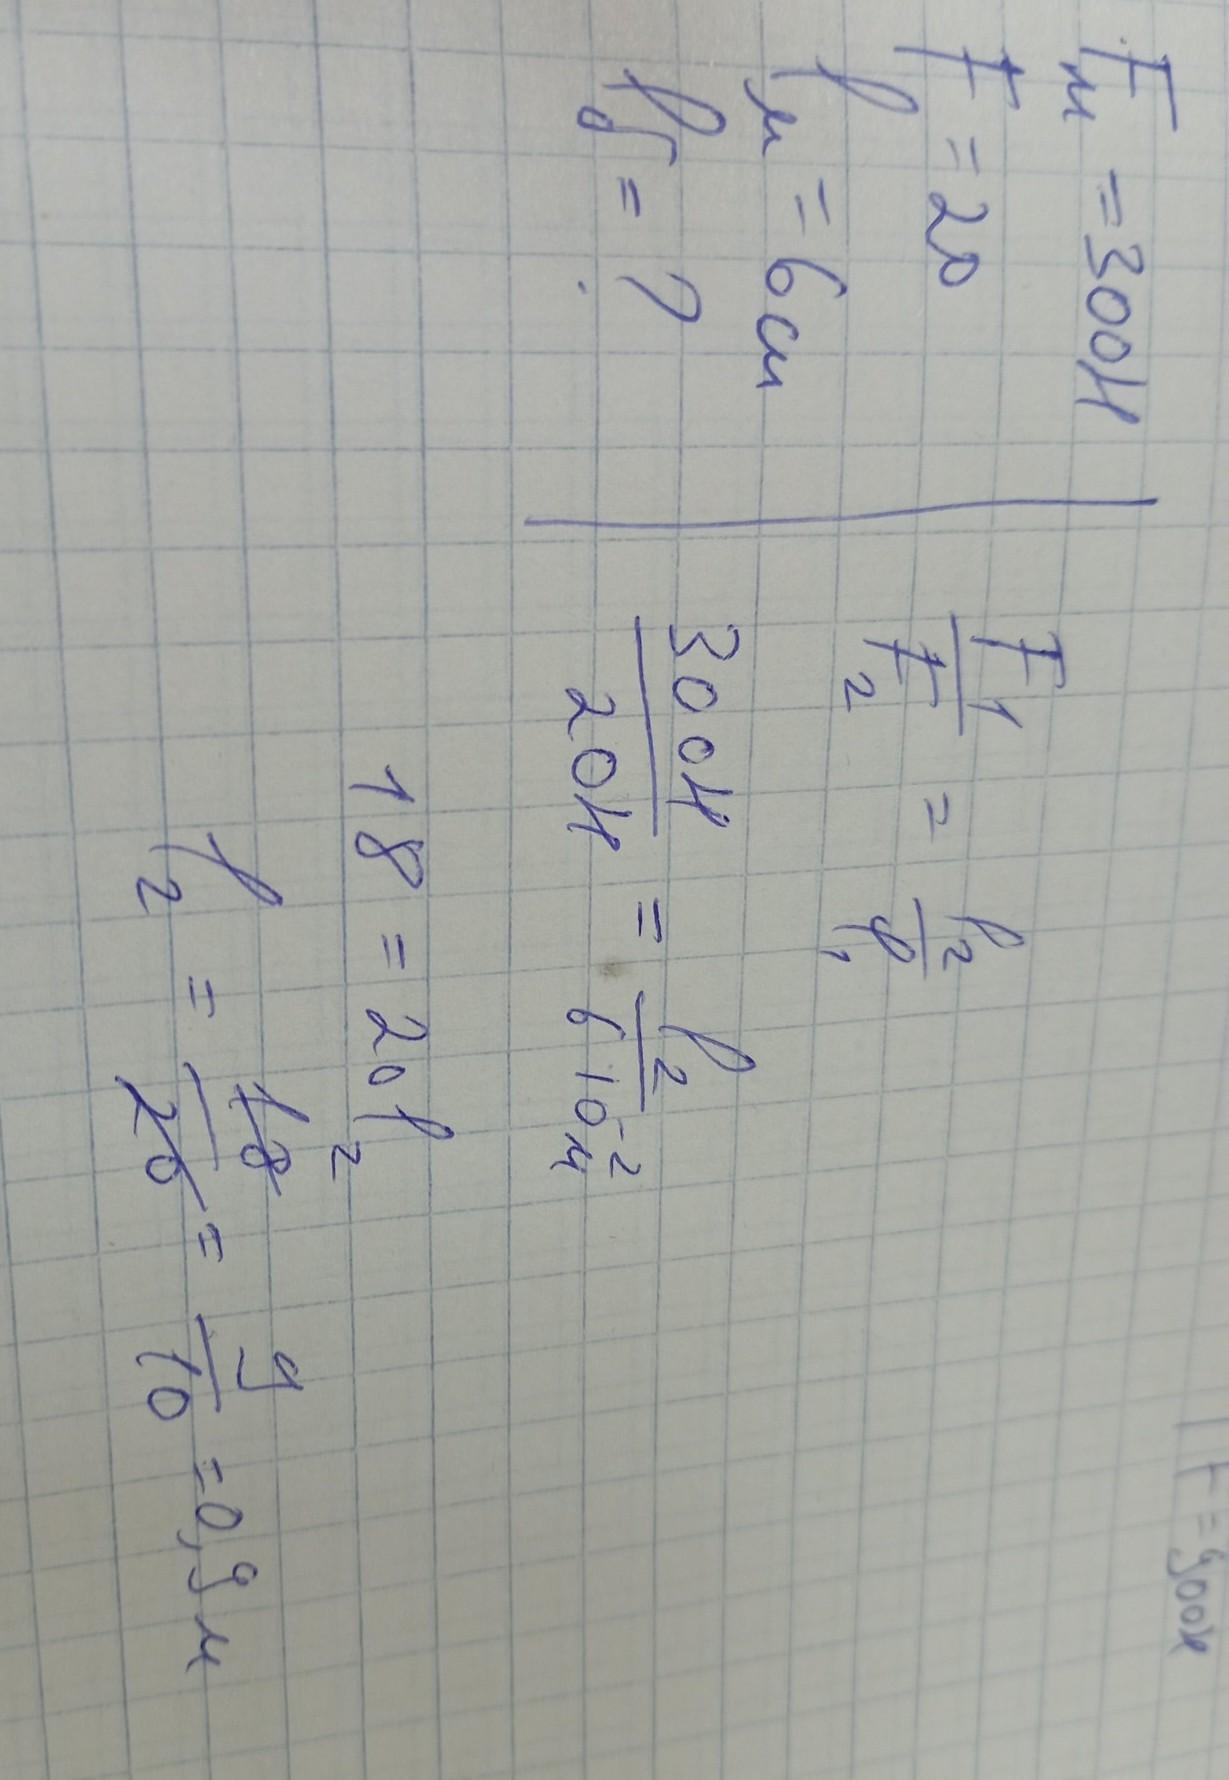 Fм = 300Н
F = 20
lм = 6см
lб = ?
F1/F2 = l2/l1
300Н/20Н = l2/6 10⁻²м
18 = 20l2
l2 = 18/20 = 9/10 = 0,9м
F = 900н